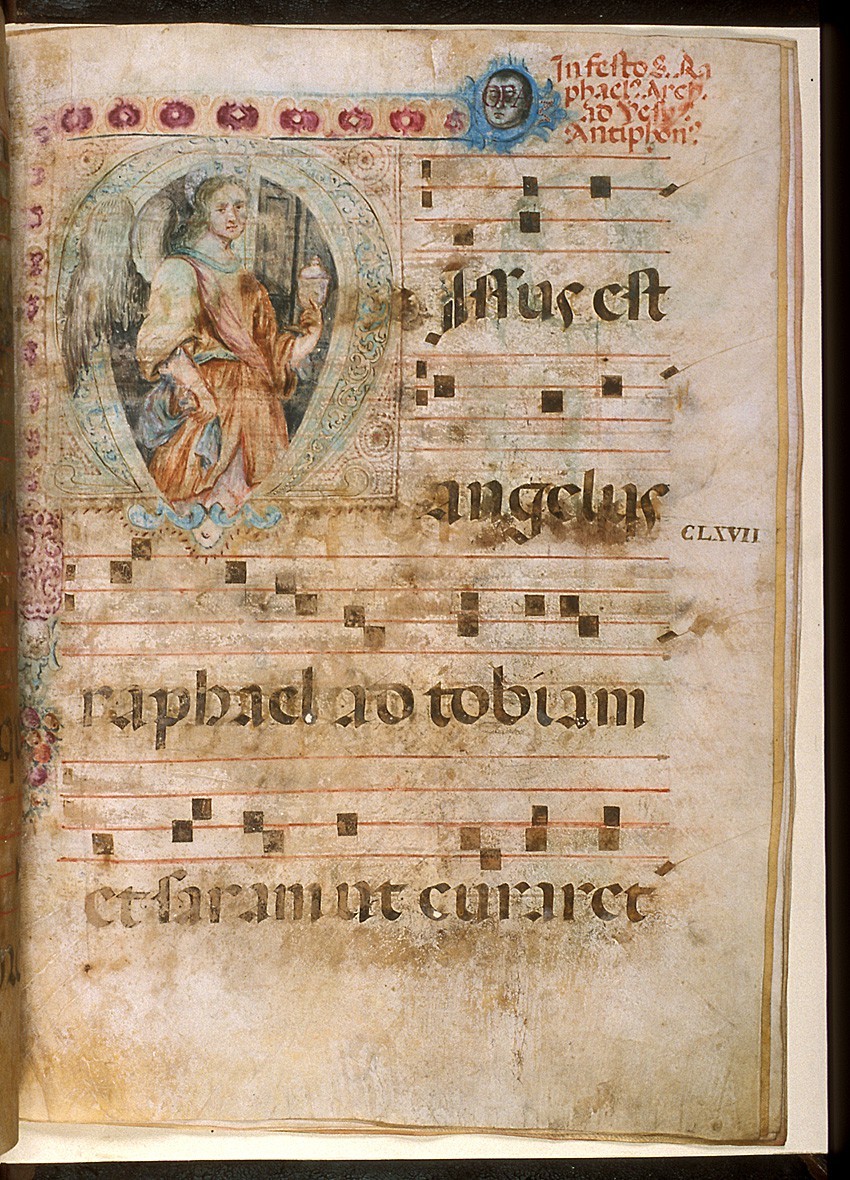 In festo S. Ra
phael. Arch.
ad Vesp.
Antiphon.
Issus est
angelus
CLXVII
raphael ad tobiam
et saram ut curaret